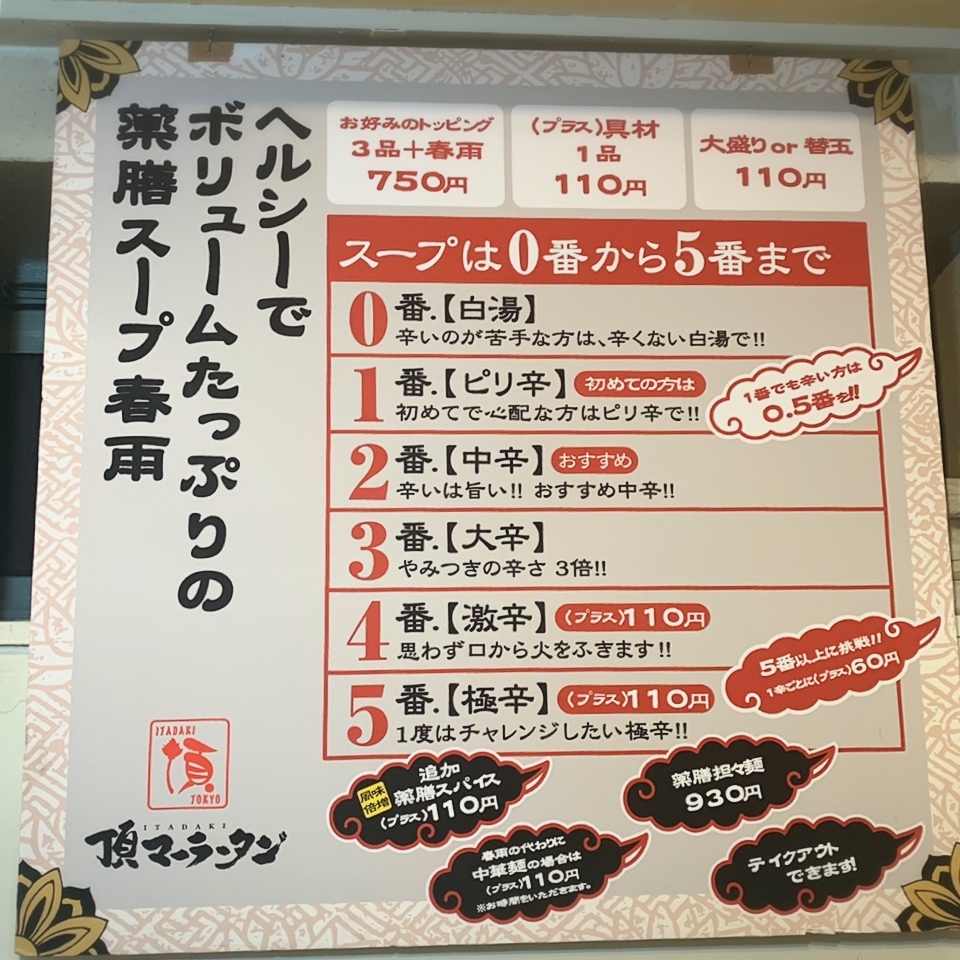 ヘルシーで
ボリュームたっぷりの
薬膳スープ春雨
お好みのトッピング
3品+春雨
750円
(プラス)具材
1品
110円
大盛り or 替玉
110円
スープは0番から5番まで
0番.【白湯】
辛いのが苦手な方は、辛くない白湯で!!
1番.【ピリ辛】 初めての方は
初めてで心配な方はピリ辛で!!
1番でも辛い方は
0.5番を!!
2番.【中辛】 おすすめ
辛いは旨い!! おすすめ中辛!!
3番.【大辛】
やみつきの辛さ 3倍!!
4番.【激辛】 (プラス)110円
思わず口から火をふきます!!
5番以上に挑戦!!
1辛ごとに(プラス)60円
5番.【極辛】 (プラス)110円
1度はチャレンジしたい極辛!!
風味
倍増
追加
薬膳スパイス
(プラス)110円
薬膳担々麺
930円
春雨の代わりに
中華麺の場合は
(プラス)110円
※お時間をいただきます。
テイクアウト
できます!
ITADAKI
頂
TOKYO
ITADAKI
頂マーラータン